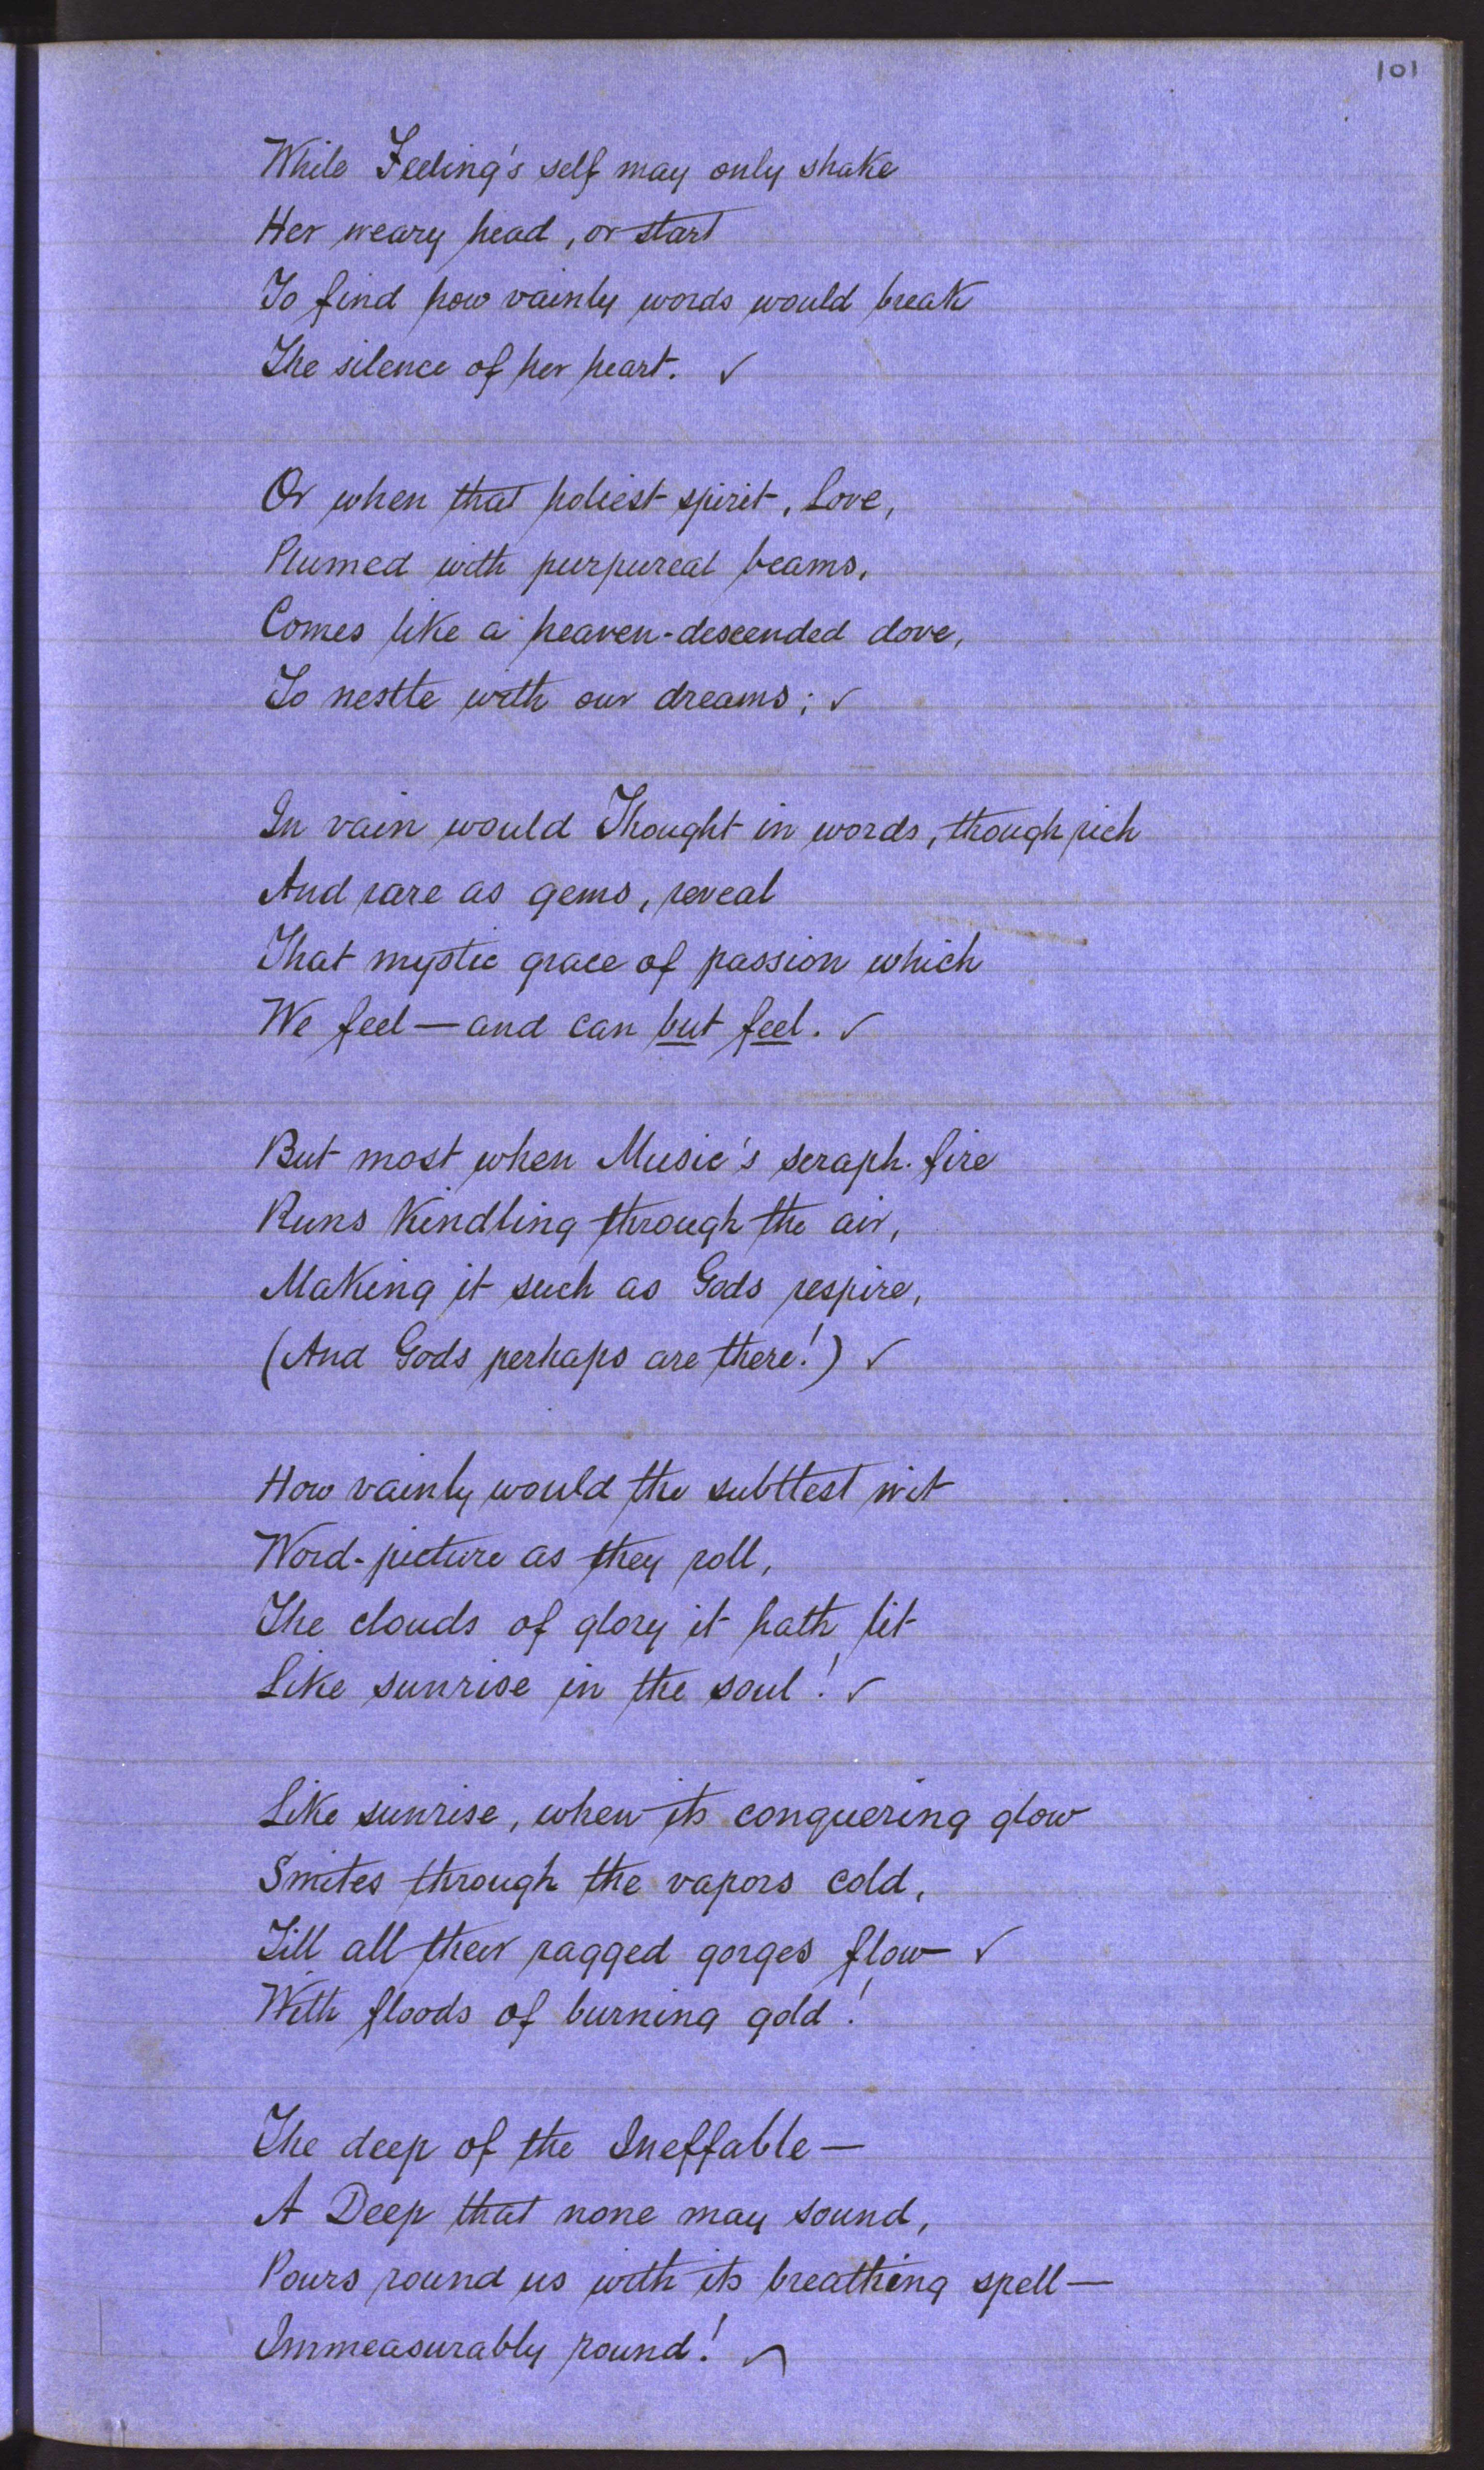 101
While Feeling's self may only shake
Her weary head, or start
To find how vainly words would break
The silence of her heart. ✓
Or when that holiest spirit, Love,
Plumed with purpureal beams,
Comes like a heaven-descended dove,
To nestle with our dreams; ✓
In vain would Thought in words, though rich
And rare as gems, reveal
That mystic grace of passion which
We feel — and can but feel. ✓
But most when Music's seraph-fire
Runs kindling through the air,
Making it such as Gods respire,
(And Gods perhaps are there!) ✓
How vainly would the subtlest wit
Word-picture as they roll,
The clouds of glory it hath lit
Like sunrise in the soul! ✓
Like sunrise, when its conquering glow
Smites through the vapors cold,
Till all their ragged gorges flow ✓
With floods of burning gold!
The deep of the Ineffable —
A Deep that none may sound,
Pours round us with its breathing spell —
Immeasurably round! ✓